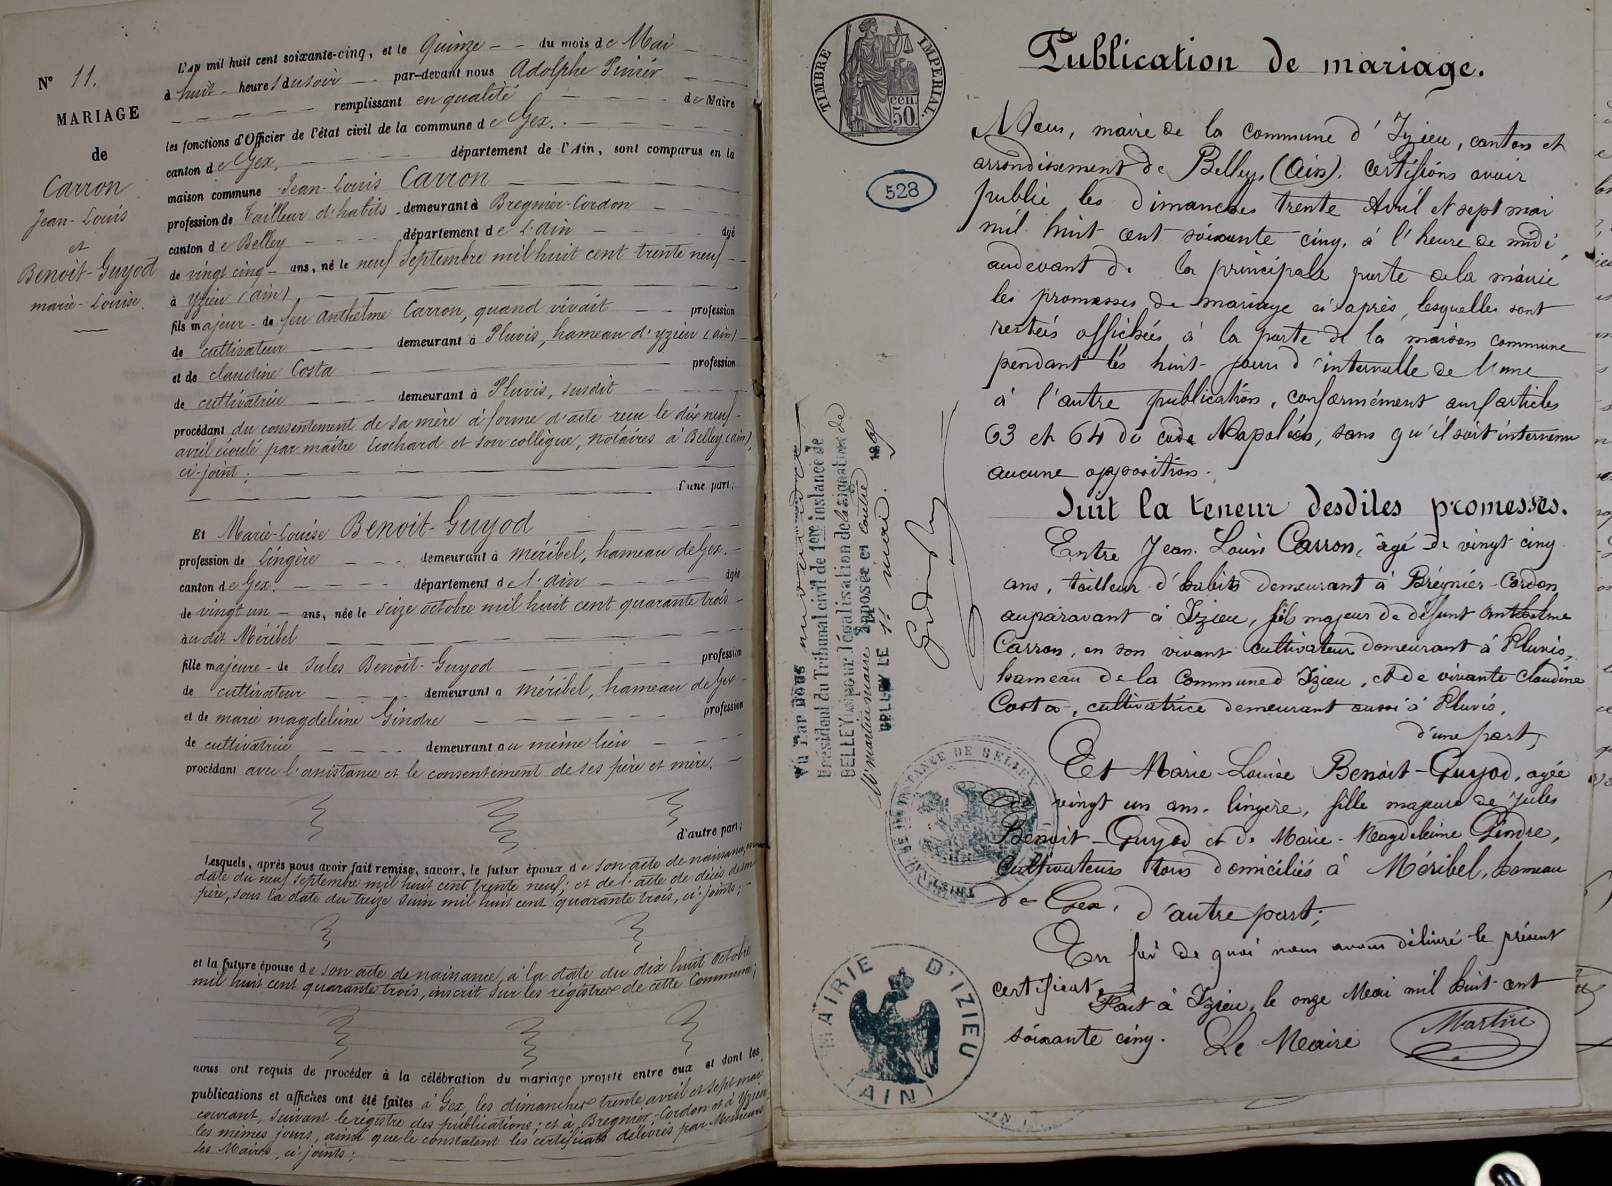 N° 11.
MARIAGE
de
Carron
Jean-Louis
et
Benoit-Guyod
marie-Louise.
L'an mil huit cent soixante-cinq, et le Quinze du mois de Mai
à huit heures du soir par-devant nous Adolphe
remplissant en qualité de Maire
les fonctions d'Officier de l'état civil de la commune de Gex.
canton de Gex. département de l'Ain, sont comparus en la
maison commune Jean-Louis Carron
profession de Tailleur d'habits demeurant à Bregnier-Cordon
canton de Belley département de l'ain âgé
de vingt cinq ans, né le neuf Septembre mil huit cent trente neuf
à Yzieu (ain)
fils majeur de feu anthelme Carron, quand vivait profession
de cultivateur demeurant à Pluvis, hameau d'yzieu (ain)
et de claudine Costa profession
de cultivatrice demeurant à Pluvis, susdit
procédant du consentement de sa mère à forme d'acte reçu le dix neuf
avril écoulé par maître Cochard et son collègue, notaires à Belley (ain),
ci-joint;
d'une part;
Et Marie-Louise Benoit-Guyod
profession de Lingère demeurant à méribel, hameau de Gex.
canton de Gex. département de l'ain âgée
de vingt un ans, née le seize octobre mil huit cent quarante trois
audit Méribel
fille majeure de Jules Benoit-Guyod profession
de cultivateur demeurant à méribel, hameau de Gex
et de marie magdeleine Gindre profession
de cultivatrice demeurant au même lieu
procédant avec l'assistance et le consentement de ses père et mère.
d'autre part;
Lesquels, après nous avoir fait remise, savoir, le futur époux de son acte de naissance,
date du neuf septembre mil huit cent trente neuf; et de l'acte de décès de son
père, sous la date du treize Juin mil huit cent quarante trois, ci-joints;
et la future épouse de son acte de naissance, à la date du dix huit octobre
mil huit cent quarante trois, inscrit sur les régistres de cette Commune;
nous ont requis de procéder à la célébration du mariage projeté entre eux et dont les
publications et affiches ont été faites à Gex, les dimanches trente avril et sept mai
courant, suivant le régistre des publications; et à Bregnier-Cordon et à Yzieu
les mêmes jours, ainsi que le constatent les certificats délivrés par Messieurs
les Maires, ci-joints;
TIMBRE IMPERIAL.
50 cen.
528
Publication de mariage.
Nous, maire de la commune d'Izieu, canton et
arrondissement de Belley, (Ain), certifions avoir
publié les dimanches trente Avril et sept mai
mil huit cent soixante cinq, à l'heure de midi,
audevant de la principale porte de la mairie
les promesses de mariage ci après, lesquelles sont
restées affichées à la porte de la maison commune
pendant les huit jours d'intervalle de l'une
à l'autre publication, conformément aux articles
63 et 64 du code Napoléon, sans qu'il soit intervenu
aucune opposition.
Suit la teneur desdites promesses.
Entre Jean Louis Carron, âgé de vingt cinq
ans, tailleur d'habits demeurant à Brégnier-Cordon
auparavant à Izieu, fils majeur de défunt Anthelme
Carron, en son vivant cultivateur demeurant à Pluvis,
hameau de la Commune d'Izieu, et de vivante Claudine
Costa, cultivatrice demeurant aussi à Pluvis,
d'une part,
Et Marie-Louise Benoit-Guyod, agée
de vingt un ans, lingère, fille majeure de Jules
Benoit-Guyod et de Marie-Magdeleine Gindre,
Cultivateurs tous domiciliés à Méribel, hameau
de Gex, d'autre part;
En foi de quoi nous avons délivré le présent
certificat.
Fait à Izieu, le onze Mai mil huit cent
soixante cinq. Le Maire Martin
Vu par nous
Président du Tribunal civil de 1ère instance de
BELLEY pour légalisation de la signature de
Mr martin maire apposée ci contre
BELLEY LE 11 mai 186
INSTANCE DE BELLEY
MAIRIE D'IZIEU
(AIN)